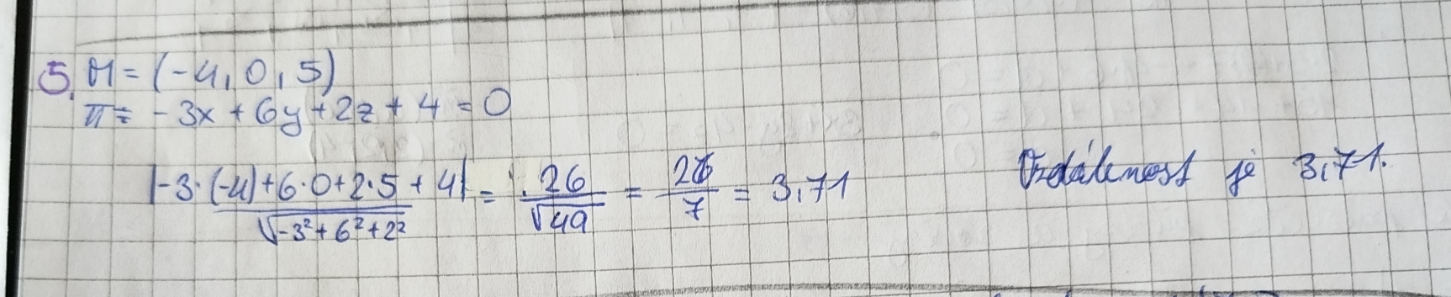 5. M = (-4, 0, 5)
π = -3x + 6y + 2z + 4 = 0
|-3·(-4)+6·0+2·5+4| / √-3²+6²+2² = 26/√49 = 26/7 = 3,71 Vzdálenost je 3,71.